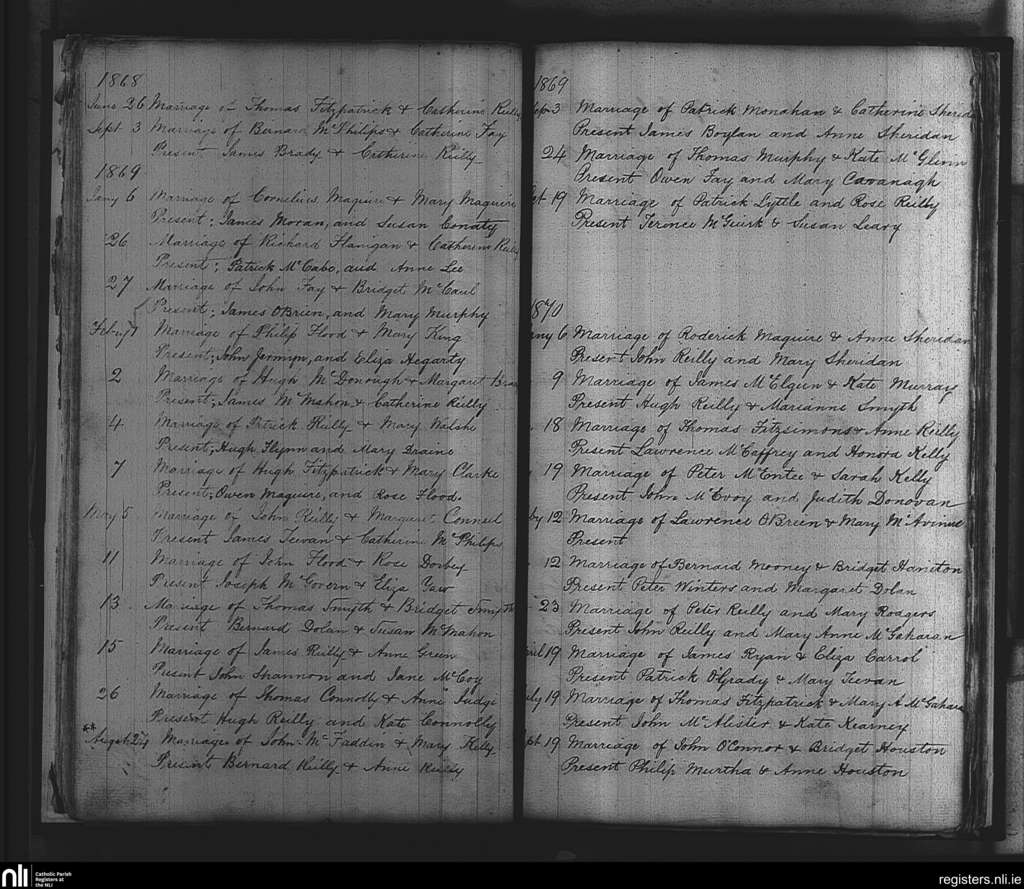 1868
June 26 Marriage of Thomas Fitzpatrick & Catherine Reilly
Sept 3 Marriage of Bernard McPhilips & Catherine Fay
Present James Brady & Catherine Reilly
1869
Jany 6 Marriage of Cornelius Maguire & Mary Maguire
Present; James Moran, and Susan Conaty
26 Marriage of Richard Flanigan & Catherine
Present; Patrick McCabe, and Anne Lee
27 Marriage of John Fay & Bridget McCaul
Present; James O'Brien, and Mary Murphy
Marriage of Philip Flood & Mary King
Present; John and Eliza Hegarty
2 Marriage of Hugh McDonough & Margaret
Present; James McMahon & Catherine Reilly
4 Marriage of Patrick Reilly & Mary Walshe
Present; Hugh Flynn and Mary
7 Marriage of Hugh Fitzpatrick & Mary Clarke
Present; Owen Maguire, and Rose Flood.
May 5 Marriage of John Reilly & Margaret
Present James & Catherine McPhilips
11 Marriage of John Flood & Rose
Present Joseph McGovern & Eliza
13 Marriage of Thomas Smyth & Bridget Smyth
Present Bernard Dolan & Susan McMahon
15 Marriage of James Reilly & Anne Green
Present John Shannon and Jane McCoy
26 Marriage of Thomas Connolly & Anne Judge
Present Hugh Reilly and Kate Connolly
**
August 24 Marriage of John McFaddin & Mary Kelly
Present Bernard Reilly & Anne Reilly
1869
Sept 3 Marriage of Patrick Monahan & Catherine Sherid
Present James Boylan and Anne Sheridan
24 Marriage of Thomas Murphy & Kate McGlinn
Present Owen Fay and Mary Cavanagh
19 Marriage of Patrick Lyttle and Rose Reilly
Present Terence McGuirk & Susan Leary
1870
6 Marriage of Roderick Maguire & Anne Sheridan
Present John Reilly and Mary Sheridan
9 Marriage of James McElgun & Kate Murray
Present Hugh Reilly & Marianne Smyth
18 Marriage of Thomas Fitzsimons & Anne Reilly
Present Lawrence McCaffrey and Honora Kelly
19 Marriage of Peter McEntee & Sarah Kelly
Present John McEvoy and Judith Donovan
12 Marriage of Lawrence O'Breen & Mary
Present
12 Marriage of Bernard Mooney & Bridget
Present Peter Winters and Margaret Dolan
23 Marriage of Peter Reilly and Mary Roagers
Present John Reilly and Mary Anne McGaharan
19 Marriage of James Ryan & Eliza Carrol
Present Patrick O'Grady & Mary Tevan
19 Marriage of Thomas Fitzpatrick & Mary A McGahara
Present John McAlister & Kate Kearney
19 Marriage of John O'Connor & Bridget Houston
Present Philip Murtha & Anne Houston
nli
Catholic Parish
Registers at
the NLI
registers.nli.ie